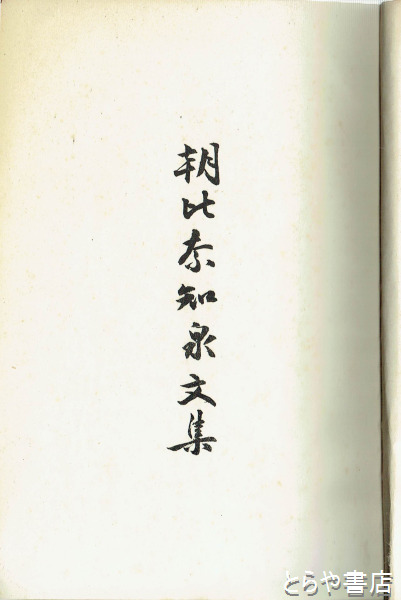 朝比奈知泉文集
とらや書店